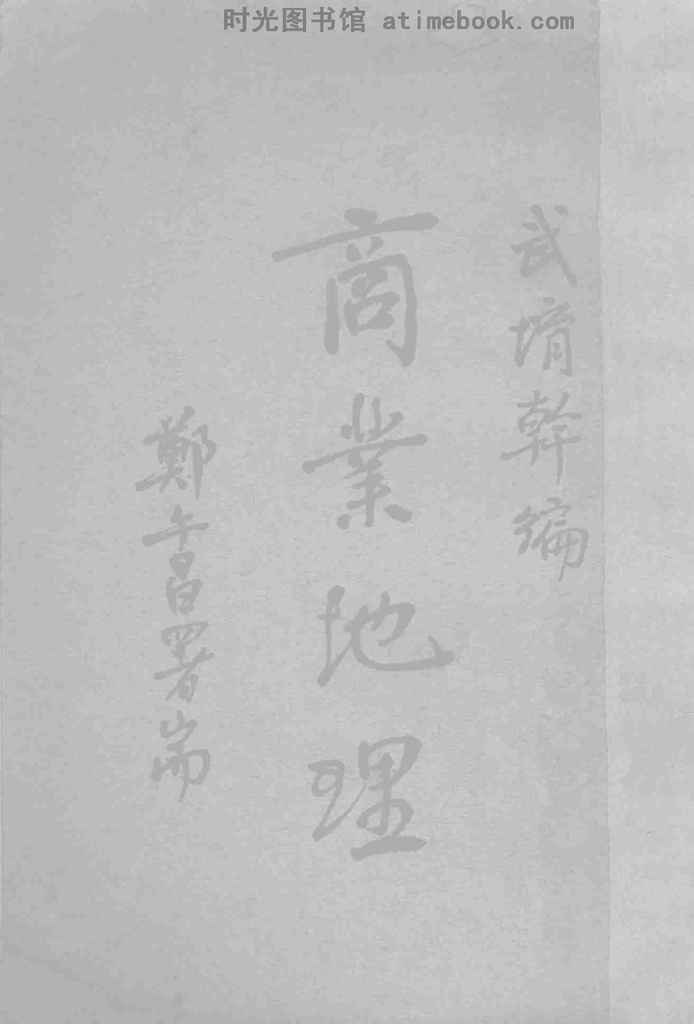 时光图书馆 atimebook.com
武堉幹編
商業地理
鄭午昌署耑